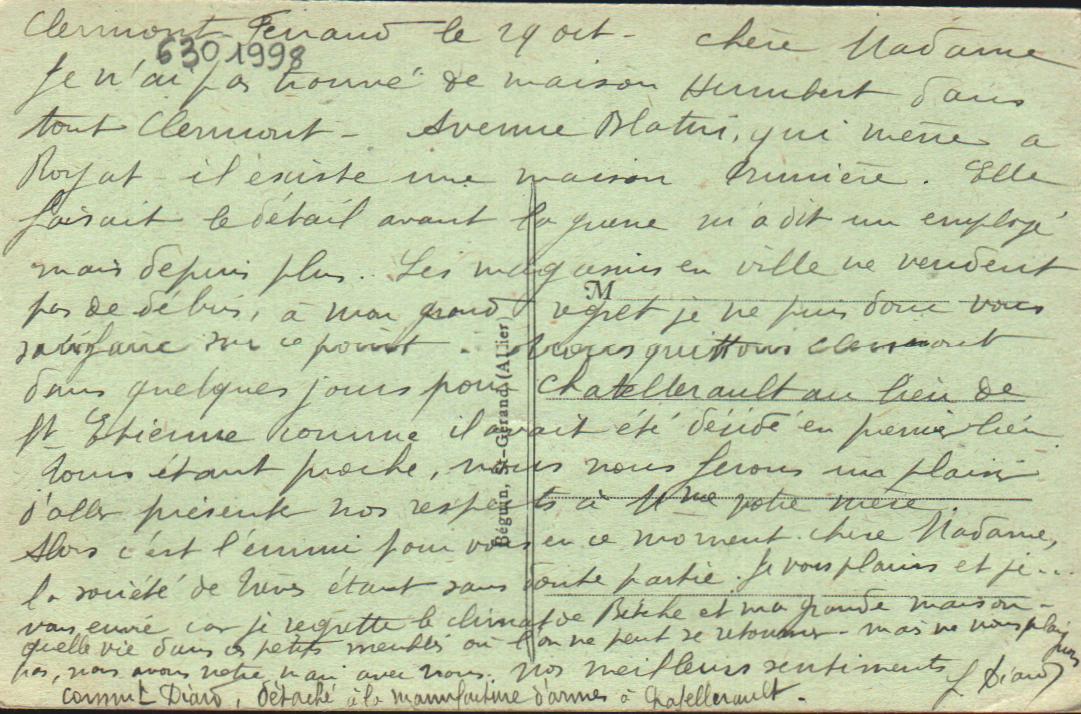 Clermont-Ferrand le 29 oct - chère Madame
6301998
Je n'ai pas trouvé de maison Humbert dans
tout Clermont - Avenue Blatin, qui mène a
Royat - il existe une maison . Elle
faisait le détail avant la guerre m'a dit un employé
mais depuis plus. Les magasins en ville ne vendent
pas de débris, à mon grand regret je ne puis donc vous
M
satisfaire sur ce point - Nous quittons Clermont
dans quelques jours pour Chatellerault au lieu de
St Etienne comme il avait été décidé en premier lieu
Tours étant proche, nous nous ferons un plaisir
d'aller présenter nos respects à Mme votre mère.
Alors c'est l'ennui pour vous en ce moment chère Madame,
la société de étant sans doute partie. Je vous plains et je...
vous envie car je regrette le climat de Bitche et ma grande maison -
quelle vie dans ces petits meublés où l'on ne peut se retourner - mais ne nous plaignons
pas, nous avons notre mari avec nous. Nos meilleurs sentiments L Diard
Commt Diard, détaché à la manufacture d'armes à Chatellerault -
Béguin, St-Gérand (Allier)